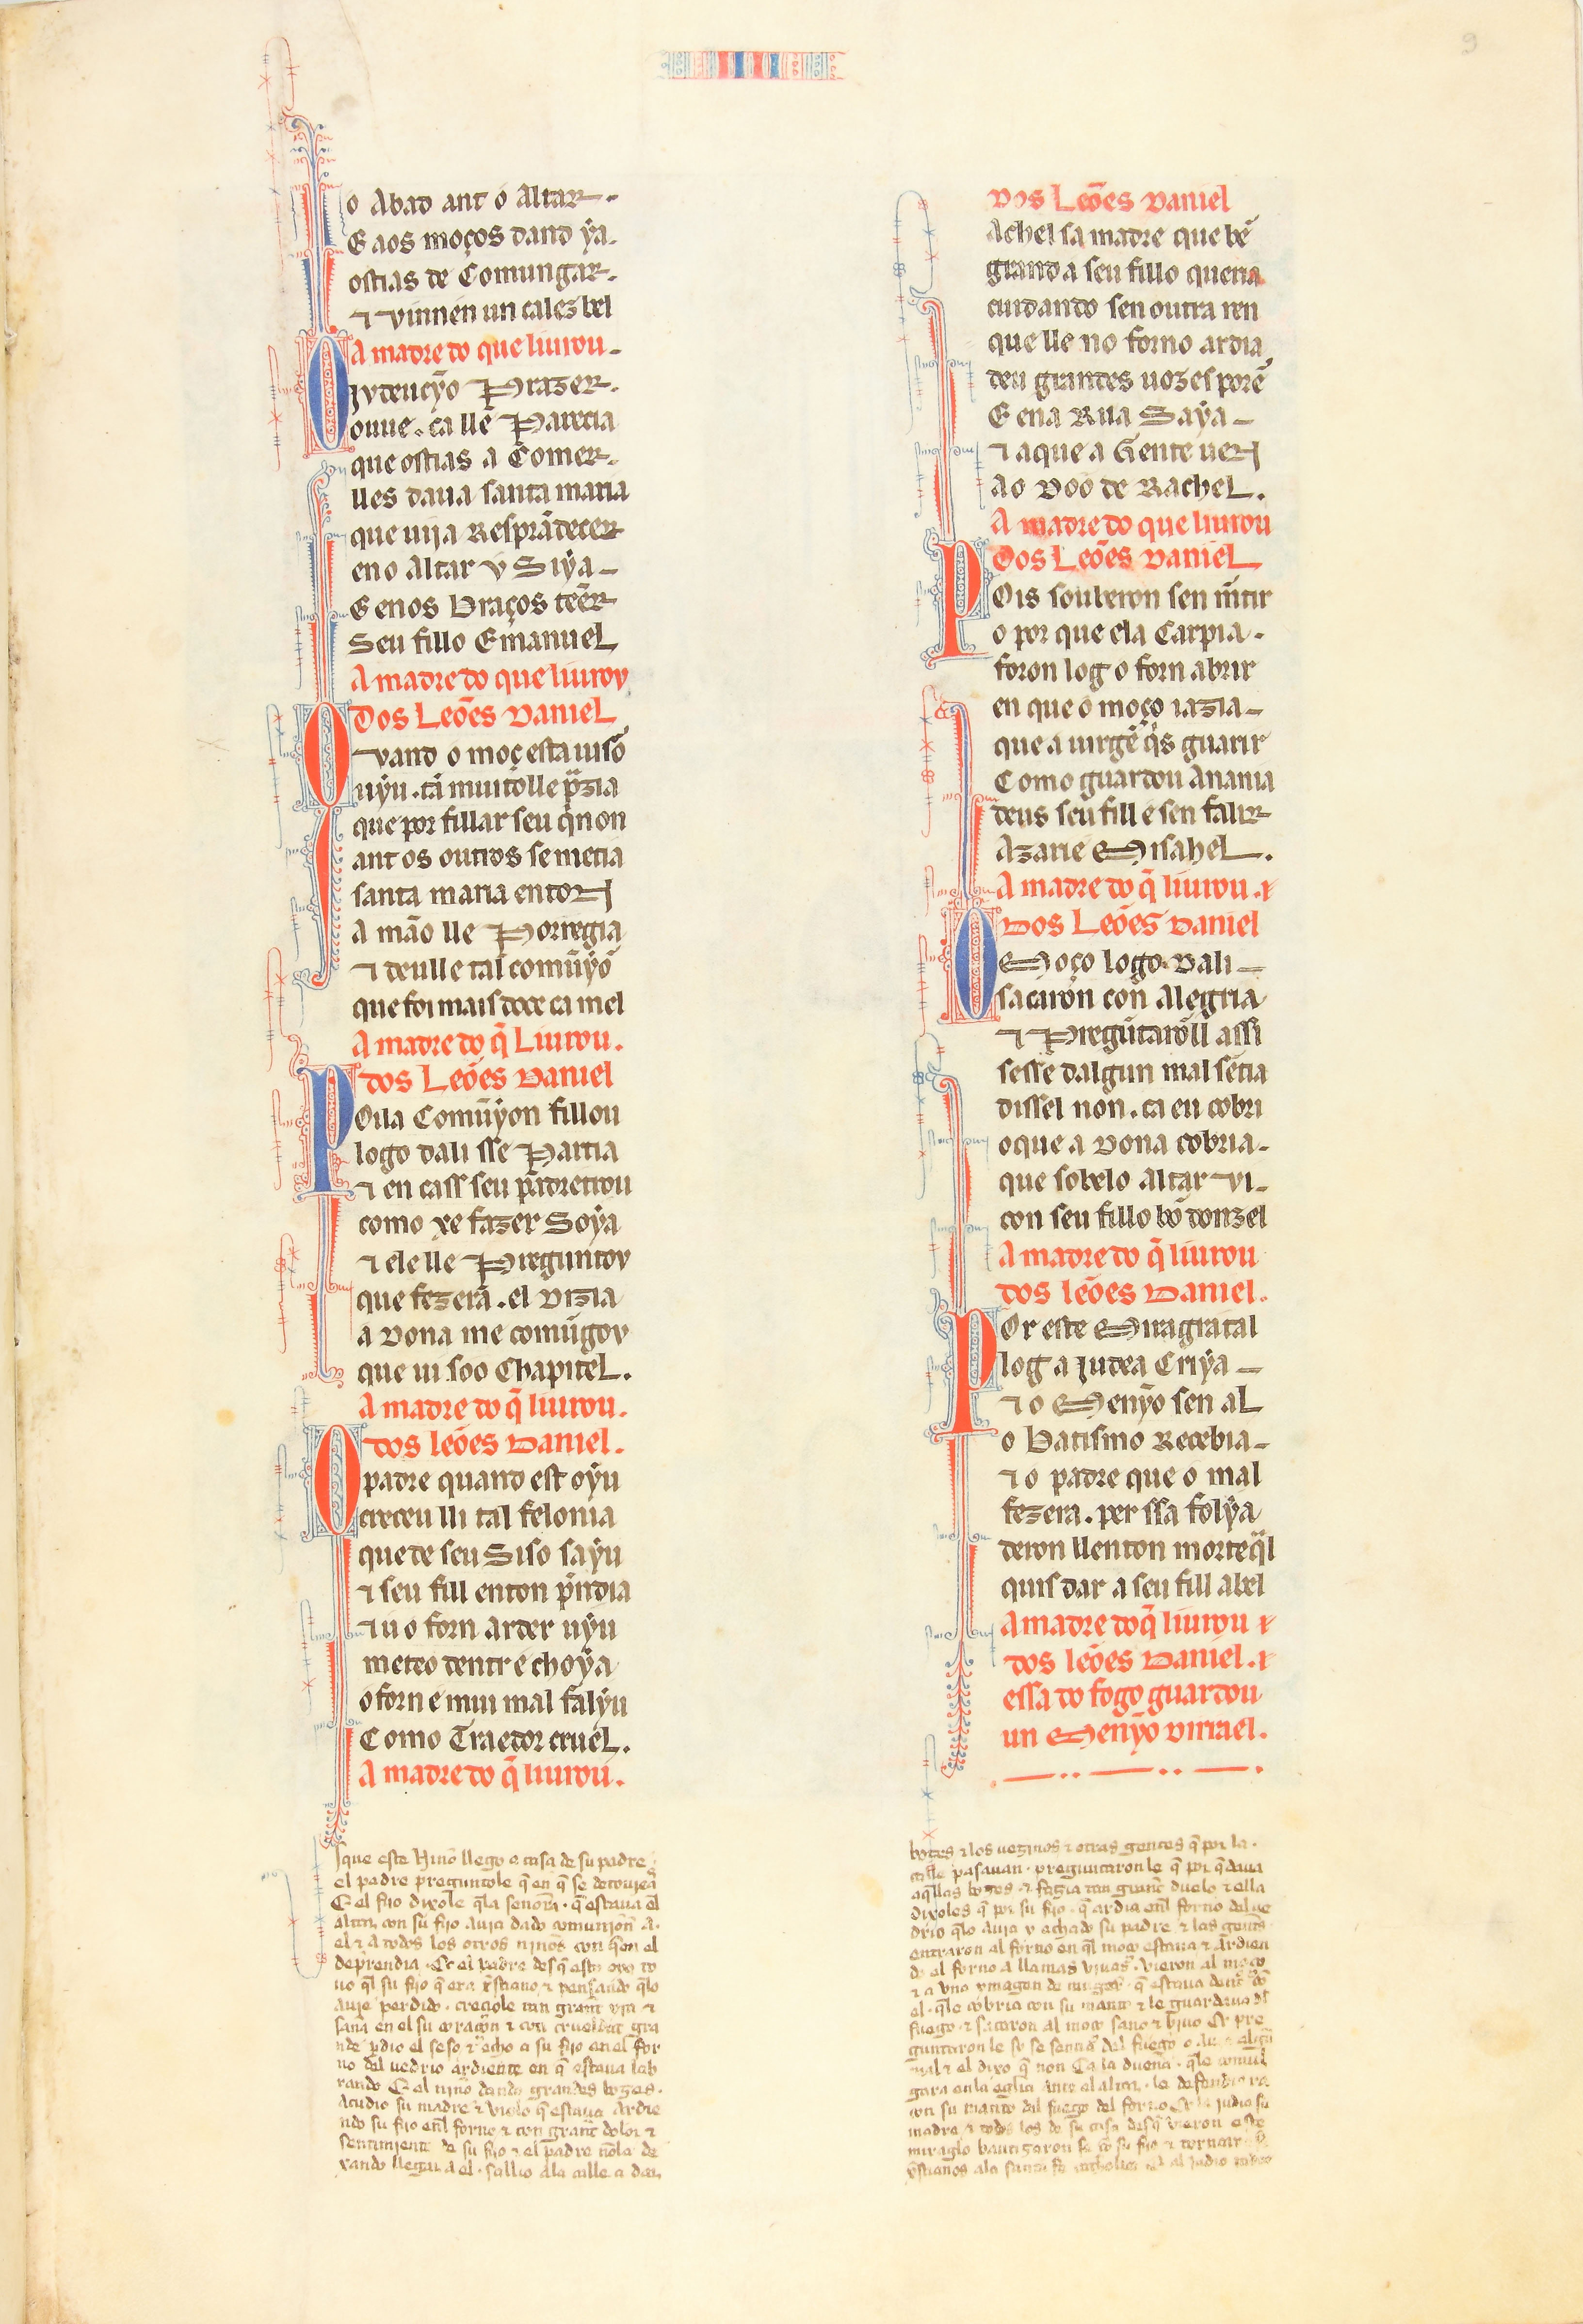 9
o Abad ant o Altar.
E aos moços dand ýa.
ostias de Comungar.
⁊ vijnnen un calez bel
A madre do que liurou.
O Iudeucỹo Prazer.
ouue. ca lle Parecia
que ostias a Comer.
lles daua santa maria
que uija Resprãdecer
eno Altar v Siýa
E enos Braços tẽer
Seu fillo Emanuel
A madre do que liurov
Dos Leões Daniel
Quand o moç esta uisõ
uýu. tã muito lle p̃zia
que por fillar seu q̃nnon
ant os outros se metia
santa maria enton
a mão lle Porregia
⁊ deulle tal comũyõ
que foi mais doce ca mel
A madre do q̃ Liurou.
dos Leões Daniel
Poila Comũyon fillou
logo dali sse Partia
⁊ en cass seu padr entrou
como xe fazer Soýa
⁊ ele lle Preguntov
que fezera. el Dizia
a Dona me comũgov
que ui soo Chapitel.
A madre do q̃ liurou.
dos leões Daniel.
O padre quand est oýu
creceu lli tal felonia
que de seu Siso saýu
⁊ seu fill enton p̃ndia
⁊ u o forn arder uýu
meteo dentr e choýa
o forn e mui mal falýu
Como Traedor cruel.
A madre do q̃ liurou.
Dos Leões Daniel
Rachel sa madre que bẽ
grand a seu fillo queria
cuidando sen outra ren
que lle no forno ardia
deu grandes uozes porẽ
E ena Rua Saýa
⁊ aque a Gente uen
ao Doo de Rachel.
A madre do que liurou
Dos Leões Daniel
Pois souberon sen mẽtir
o por que ela Carpia.
foron log o forn abrir
en que o moço iazia
que a uirgẽ q̃s guarir
Como guardou Anania
deus seu fill e sen falir
Azarie Misahel.
A madre do q̃ liurou.
Dos Leões Daniel
O Moço logo Dali
sacaron con Alegria
⁊ Pregũtarõll assi
sesse dalgun mal sẽtia
dissel non. ca eu cobri
o que a Dona cobria.
que sobelo Altar vi
con seu fillo bõ donzel
A madre do q̃ liurou
dos leões Daniel.
Por este Miragratal
log a judea Criýa
⁊ o Menỹo sen al
o Batismo Recebia
⁊ o padre que o mal
fezera. per ssa folýa
deron ll enton morte q̃l
quis dar a seu fill abel
A madre do q̃ liurou
dos leões Daniel.
essa do fogo guardou
un Menỹo dirrael.
que este Nino llego a casa de su padre
el padre preguntole q̃ en q̃ se detouiera
E el fijo dixole q̃la senora. q̃ estaua ẽl
altar con su fijo auia dado comunion a.
el ⁊ a todos los otros ninos con q̃en el
deprendia. E el padre desq̃ esto oyo
q̃l su fijo q̃ era xp̃iano ⁊ pensando q̃lo
auie perdido. creciole tan grant yra ⁊
sana en el su coraçon ⁊ con crueldat gra
nde p̃dio el seso ⁊ echo a su fijo en el for
no del uedrio ardiente en q̃ estaua lab
rando E el nino dando grandes bozes.
Acudio su madre ⁊ violo q̃ estaua Ardie
ndo su fijo enl forno ⁊ con grant dolor ⁊
sentimiento de su fijo ⁊ el padre nõla de
xando llegar a el. sallio ala calle a dar
bozes ⁊ los uezinos ⁊ otras gentes q̃ por la.
calle pasauan. preguntaronle q̃ por q̃ daua
aq̃llas bozes. ⁊ fazia tan grant duelo ⁊ ella
dixoles q̃ por su fijo. q̃ ardia enl forno del ue
drio q̃lo auia y echado su padre ⁊ las gentes
entraron al forno en q̃l moço estaua ⁊ Ardien
do el forno a llamas viuas. vieron al moço
⁊ a vna ymagen de muger. q̃ estaua dentro cõ
el. q̃le cobria con su manto ⁊ le guardaua dl
fuego. ⁊ sacaron al moço sano ⁊ biuo E pre
guntaronle se sentia del fuego o algũ
mal ⁊ el dixo q̃ non Ca la duena. q̃le comul
gara en la eglia ante el altar. le defendiera
con su manto del fuego del forno E judio su
madre ⁊ todos los de su casa desq̃ vieron este
miraglo bautizaron se cõ su fijo ⁊ tornar
xp̃tianos ala santa fe catholica E al judio padre